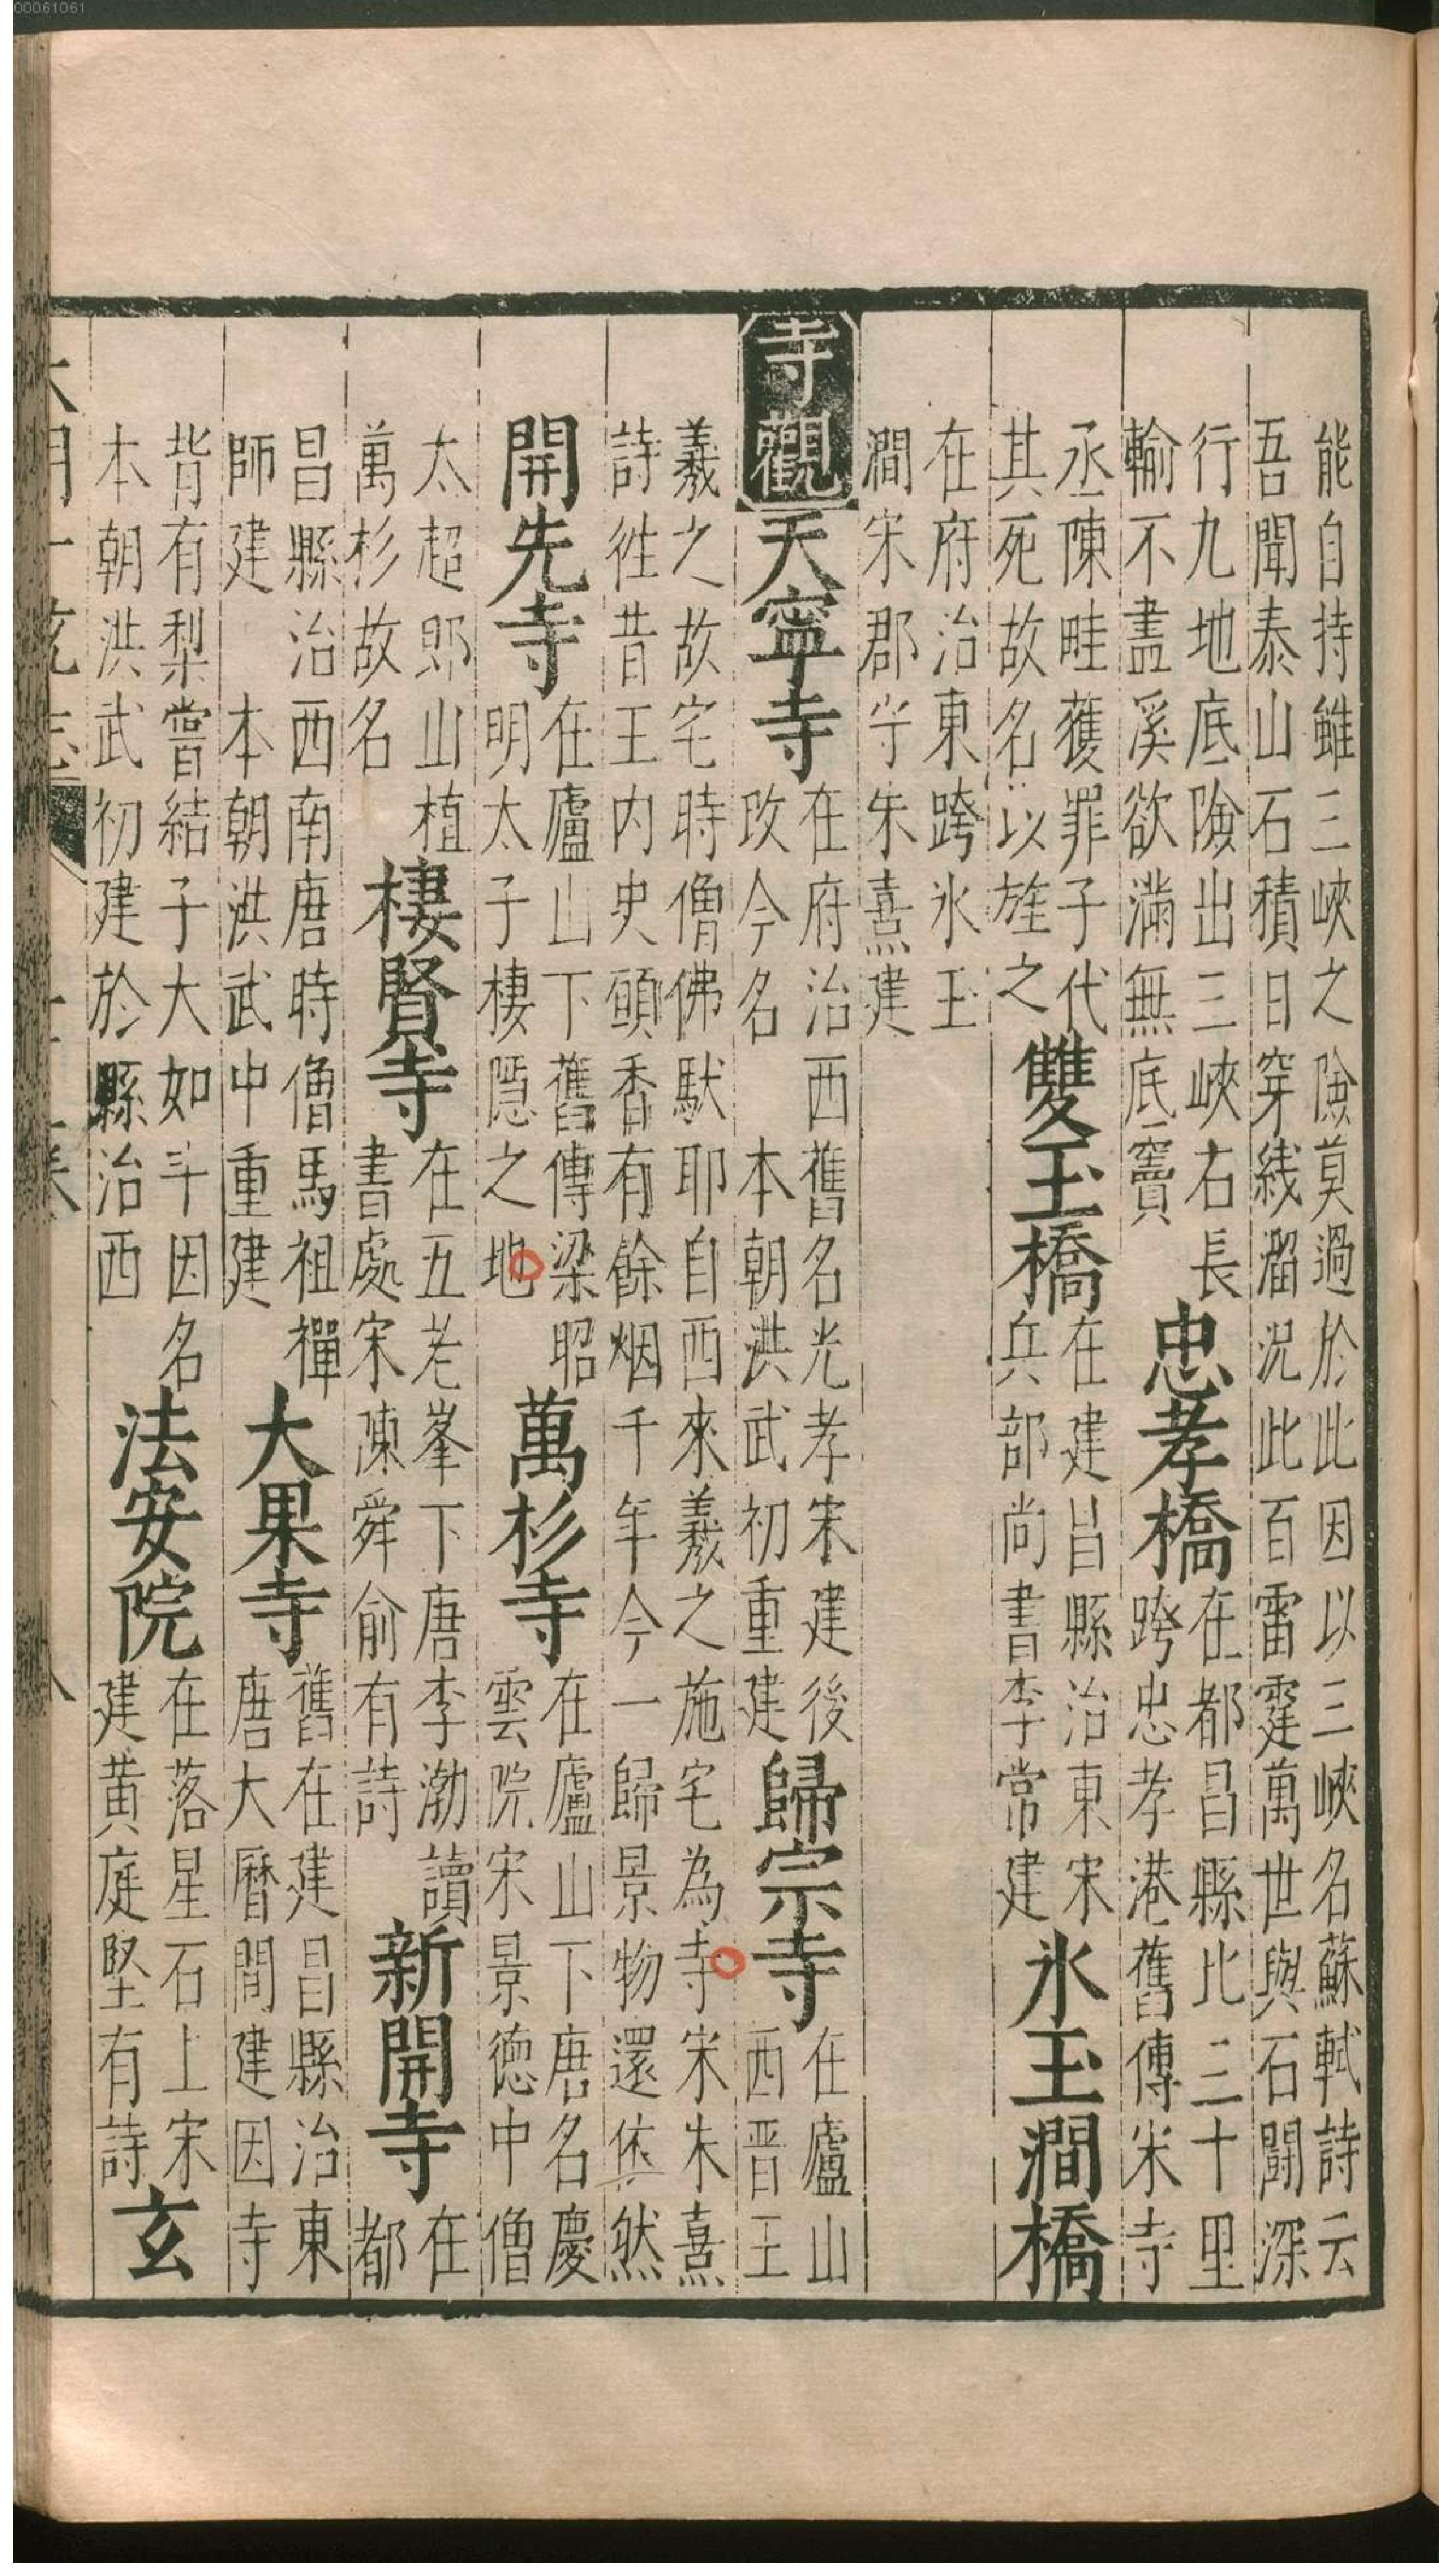 能自持雖三峽之險莫過於此因以三峽名蘇軾詩云
吾聞泰山石積日穿綫溜況此百雷霆萬世與石鬬深
行九地底險出三峽右長
輸不盡溪欲滿無底竇
忠孝橋
在都昌縣比二十里
跨忠孝港舊傳米寺
丞陳畦獲罪子代
其死故名以旌之
雙玉橋
在建昌縣治東宋
兵部尚書李常建
氷玉澗橋
在府治東跨氷玉
澗宋郡守朱熹建
寺觀
天寧寺
在府治西舊名光孝宋建後
攺今名 本朝洪武初重建
歸宗寺
在廬山
西晋王
羲之故宅時僧佛馱耶自西來羲之施宅為寺宋朱熹
詩徃昔王内史頭香有餘烟千年今一歸景物還依然
開先寺
在廬山下舊傳梁昭
明太子棲隐之地
萬杉寺
在廬山下唐名慶
雲院宋景徳中僧
太超郎山植
萬杉故名
棲賢寺
在五老峯下唐李渤讀
書處宋陳舜俞有詩
新開寺
在
都
昌縣治西南唐時僧馬祖禪
師建 本朝洪武中重建
大果寺
舊在建昌縣治東
唐大曆間建因寺
背有梨嘗結子大如斗因名
本朝洪武初建於縣治西
法安院
在落星石上宋
建黄庭堅有詩
玄
00061061